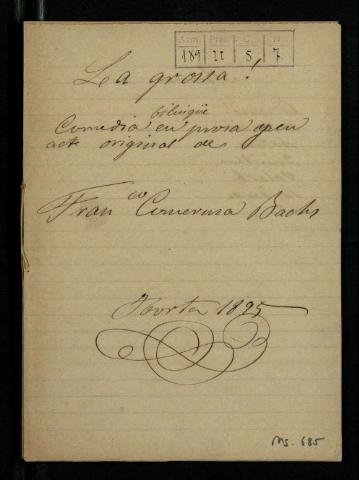 Arm. Prest. C. N.
189 II 5 7
La grossa!
bilingüe
Comedia en prosa y en un
act original de
Fran.co Comerma Bachs
1895
Ms. 685